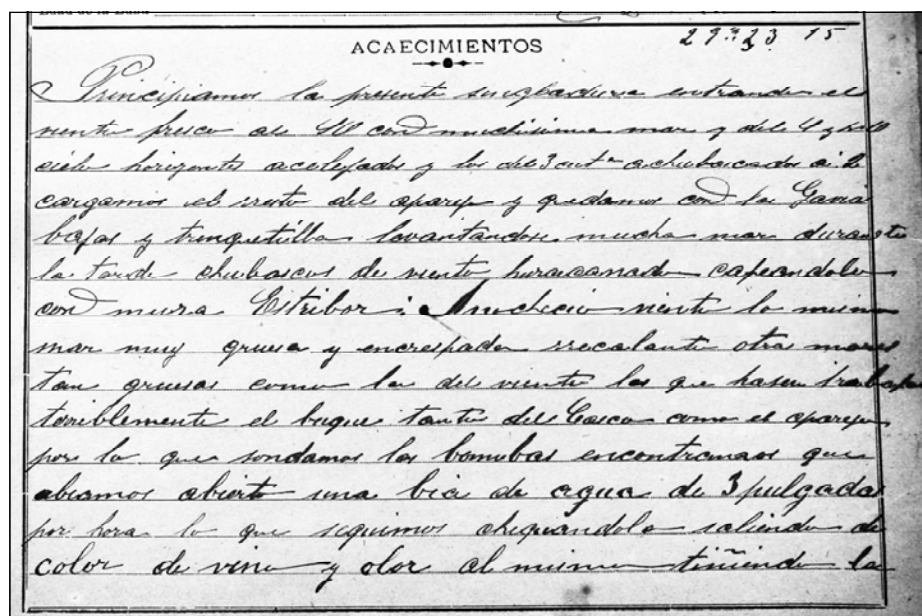 ACAECIMIENTOS
Principiamos la presente singladura entrando el
viento fresco del con muchisima mar y del
cielo horizonte acelajados y los del 3 cuarte achubascados a la
cargamos el resto del aparejo y quedamos con la Gavia
bajas y trinquetilla levantandose mucha mar durante
la tarde chubascos de viento huracanado capeandolo
con mura Estribor: Anochecio viento lo mismo
mar muy gruesa y encrespada recalante otras mares
tan gruesas como la del viento las que hasen trabajar
terriblemente el buque tanto del Casco como el aparejo
por lo que sondamos las bombas encontramos que
abiamos abierto una bia de agua de 3 pulgadas
por hora lo que seguimos chequandola saliendo de
color de vino y olor al mismo tiñiendo la